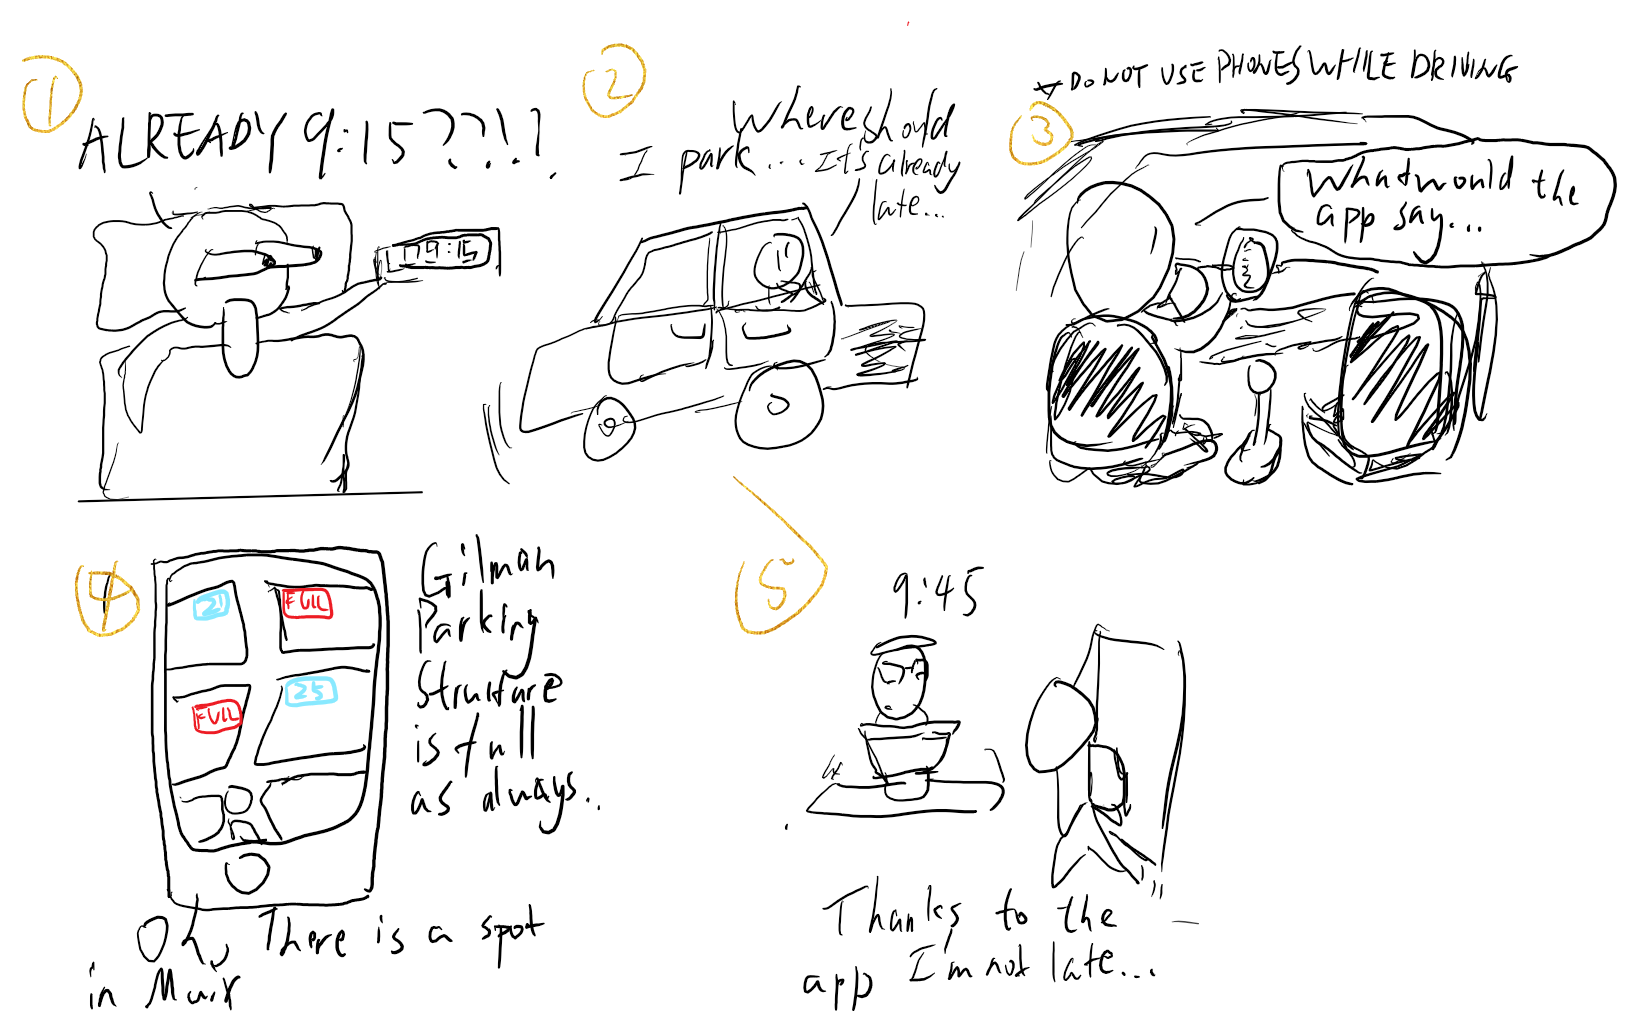 1
ALREADY 9:15??!?
79:15
2
Where should
I park... It's already
late...
DO NOT USE PHONES WHILE DRIVING
3
What would the
app say...
4
21
FULL
FULL
25
Gilman
Parking
Structure
is full
as always..
Oh, There is a spot
in Muir
5
9:45
Thanks to the
app I'm not late...